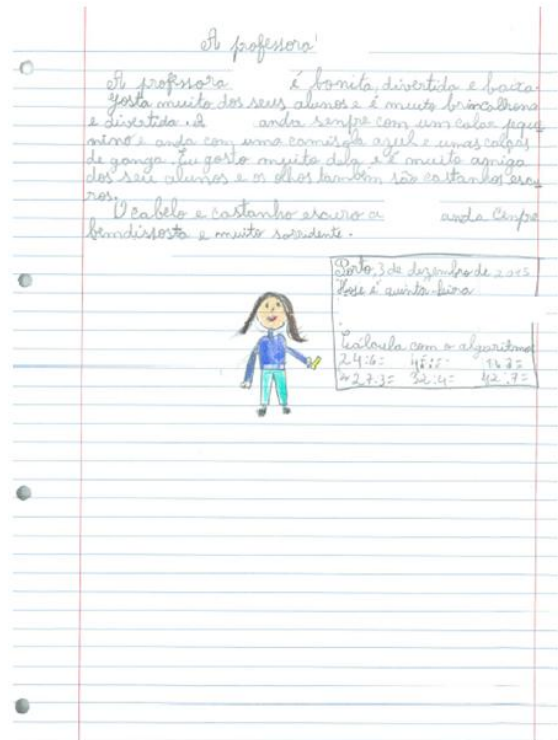 A professora!
A professora é bonita, divertida e baixa
gosta muito dos seus alunos e é muito brincalhona
e divertida. A anda senpre com um colar pequi
nino e anda com uma camisola azul e umas calças
de ganga. Eu gosto muito dela e é muito amiga
dos seu alunos e os olhos também são castanhos escu
ros.
O cabelo e castanho escuro a anda cenpre
bemdissosta e muito sorridente.
Porto, 3 de dezembro de 2015
Hoje é quinta-feira
Calcula com o algaritmo
24:6=
27:3= 32:4= 42:7=